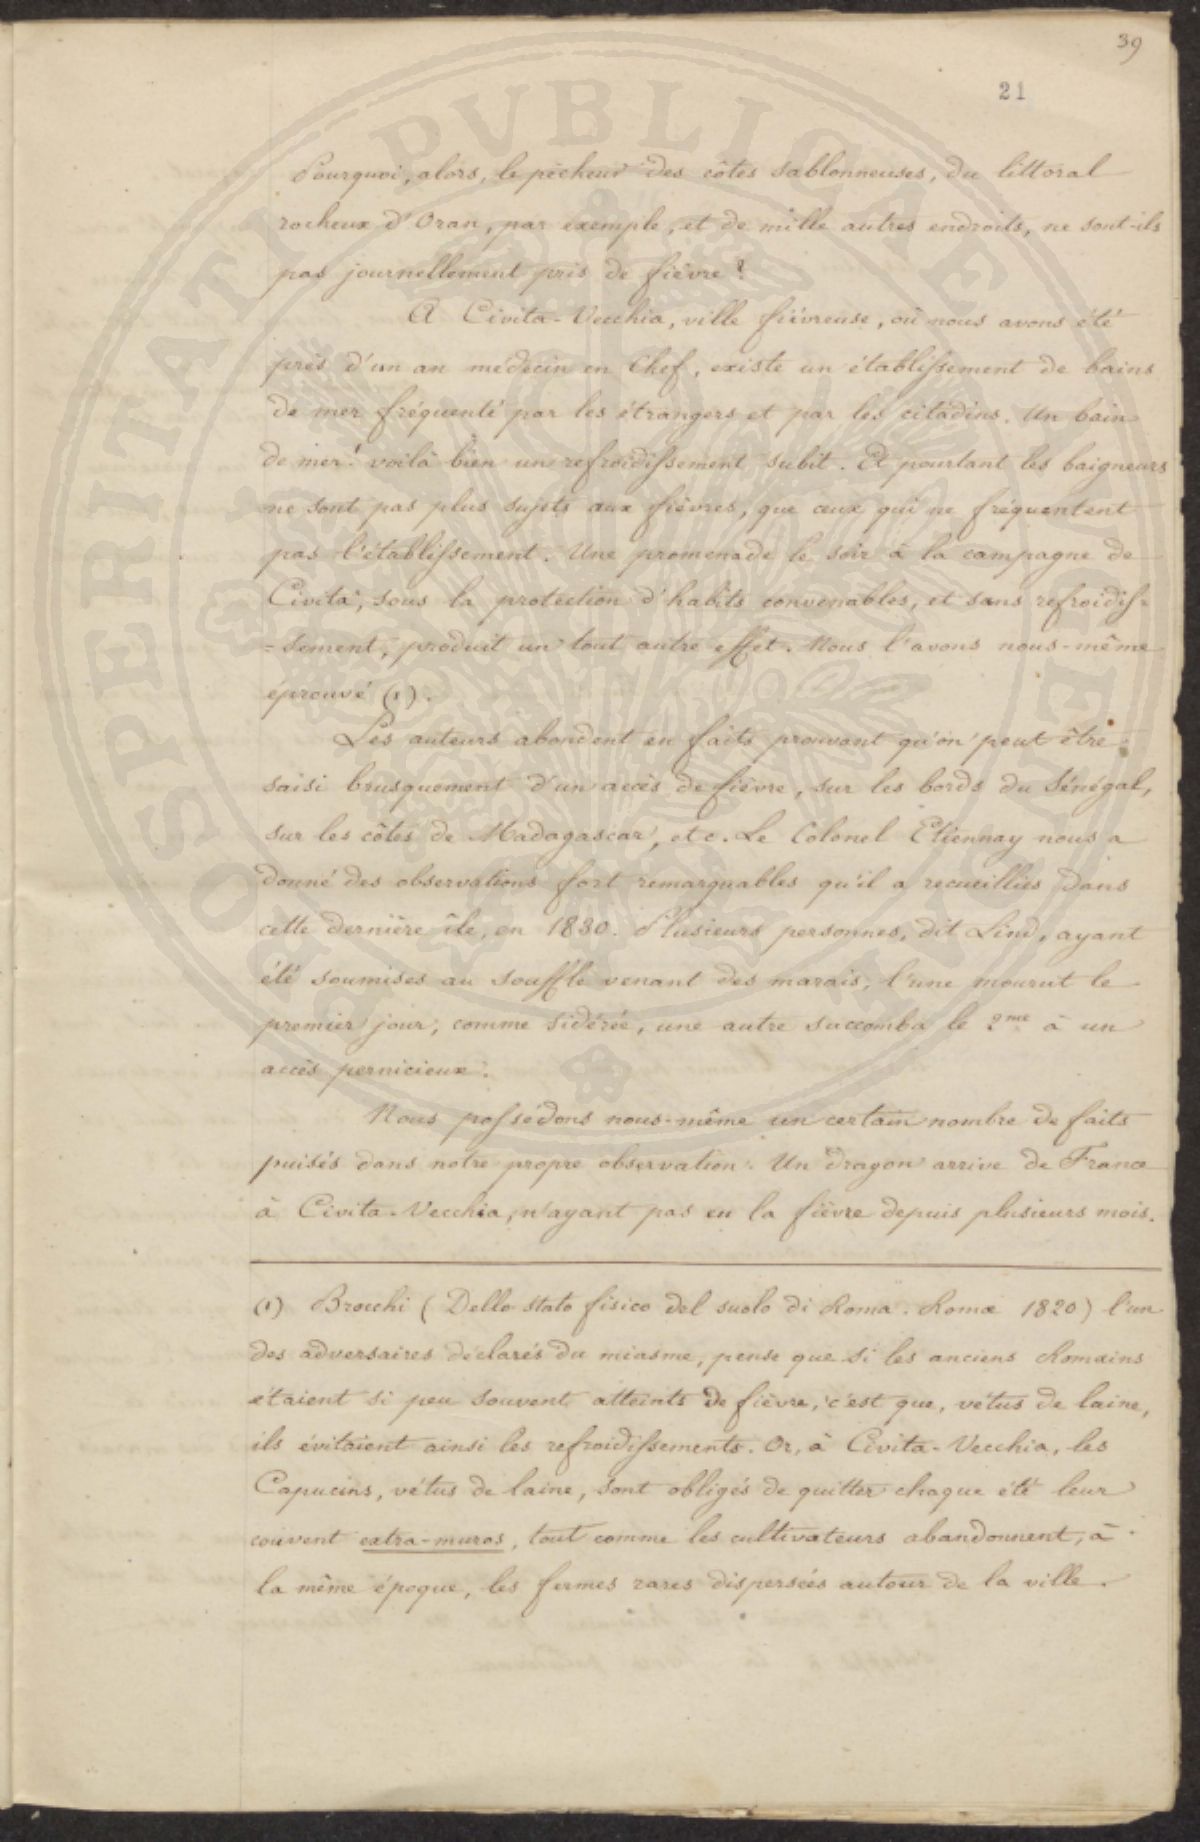 39
21
Pourquoi, alors, le pêcheur des côtes sablonneuses, du littoral
rocheux d'Oran, par exemple, et de mille autres endroits, ne sont-ils
pas journellement pris de fièvre ?
A Civita-Vecchia, ville fiévreuse, où nous avons été
près d'un an médecin en Chef, existe un établissement de bains
de mer fréquenté par les étrangers et par les citadins. Un bain
de mer ! voilà bien un refroidissement subit. Et pourtant les baigneurs
ne sont pas plus sujets aux fièvres, que ceux qui ne fréquentent
pas l'établissement. Une promenade le soir à la campagne de
Civita, sous la protection d'habits convenables, et sans refroidis=
=sement, produit un tout autre effet. Nous l'avons nous-même
éprouvé (1).
Les auteurs abondent en faits prouvant qu'on peut être
saisi brusquement d'un accès de fièvre, sur les bords du Sénégal,
sur les côtes de Madagascar, etc. Le Colonel Etiennay nous a
donné des observations fort remarquables qu'il a recueillies dans
cette dernière île, en 1830. Plusieurs personnes, dit Lind, ayant
été soumises au souffle venant des marais, l'une mourut le
premier jour, comme sidérée, une autre succomba le 2me à un
accès pernicieux.
Nous possédons nous-même un certain nombre de faits
puisés dans notre propre observation. Un dragon arrive de France
à Civita-Vecchia, n'ayant pas eu la fièvre depuis plusieurs mois.
(1) Brocchi (Dello stato fisico del suolo di Roma. Roma 1820) l'un
des adversaires déclarés du miasme, pense que si les anciens Romains
étaient si peu souvent atteints de fièvre, c'est que, vêtus de laine,
ils évitaient ainsi les refroidissements. Or, à Civita-Vecchia, les
Capucins, vêtus de laine, sont obligés de quitter chaque été leur
couvent extra-muros, tout comme les cultivateurs abandonnent, à
la même époque, les fermes rares dispersées autour de la ville.